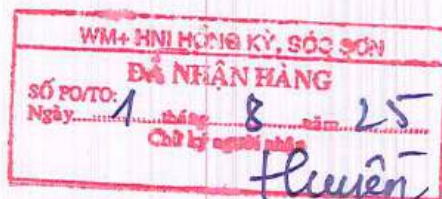 WM+ HNI HỒNG KỲ, SÓC SƠN
ĐÃ NHẬN HÀNG
SỐ PO/TO:
Ngày 1 tháng 8 năm 25
Chữ ký người nhận
Huyền